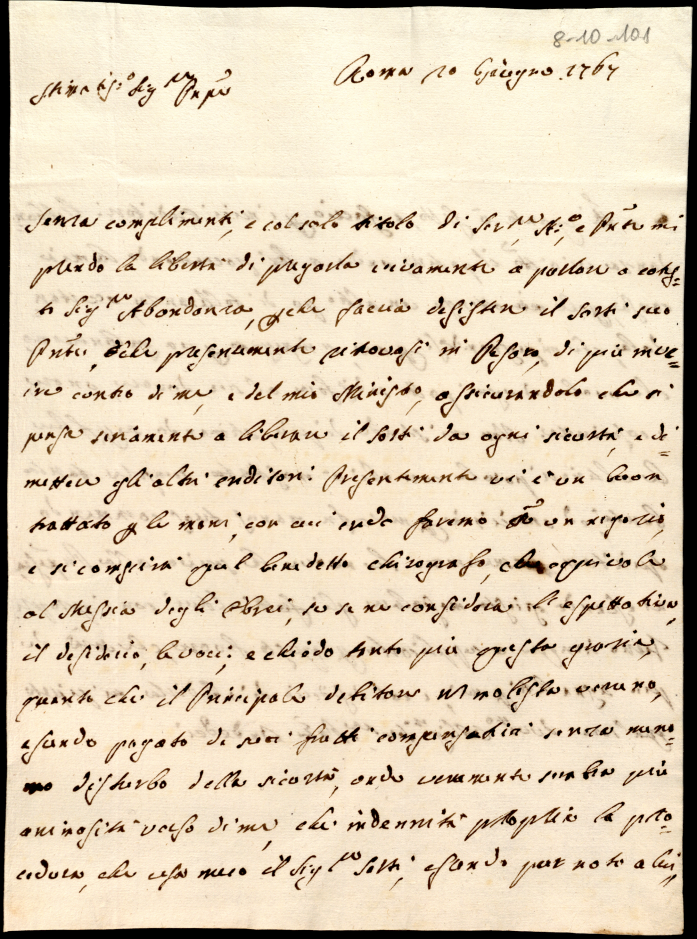 8-10-101
Roma 10 Giugno 1767
Stimatis.o Sig.re
Senza complimenti, e col solo titolo di Ser.re Am.o, e Pnte mi
prendo la libertà di pregarla vivamente a parlare a cotes=
to Sig.re Abondanza, che faccia desistere il Sorti suo
Pnte, che presentemente ritrovasi in Pesaro, di più inve=
ire contro di me, e del mio Ministro, assicurandolo che si
pensa seriamente a liberare il Sorti da ogni sicurtà, e di=
mettere gli altri creditori. Presentemente vi è un buon
trattato per le mani, con cui credo faremo un negozio,
e si compirà quel benedetto chirografo, che equivale
al Messia degli Ebrei, se se ne considera l'espettativa,
il desiderio, le voci, e chiedo tanto più questa grazia,
quanto che il Principale debitore non molesta veruno,
essendo pagato de suoi frutti compensativi senza mini=
mo disturbo della sicurtà, onde veramente sembra più
animosità verso di me, che indennità propria la pro=
cedura, che usa meco il Sig.re Sorti, essendo pur noto a lui,